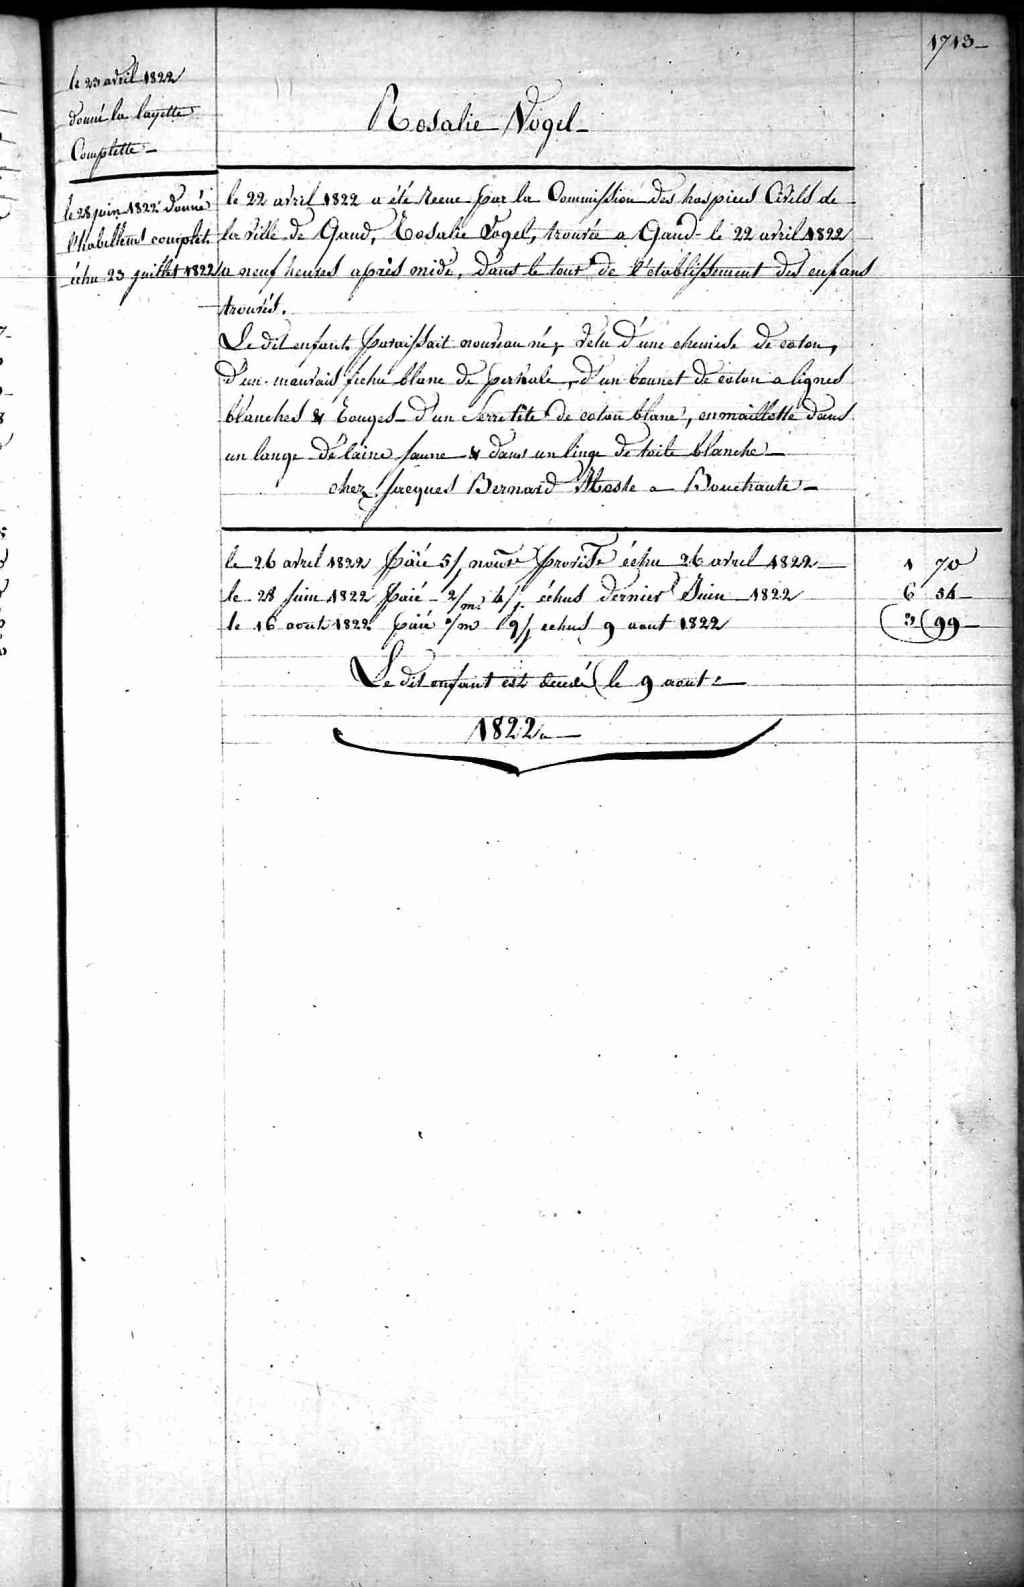 1713
le 23 avril 1822
donné la layette
Complette
Rosalie Vogel
le 28 juin 1822 donné
l'habillemt complet
échu 23 juillet 1822
le 22 avril 1822 a été recue par la Commission des hospices Civils de
la ville de Gand, Rosalie Vogel, trouvée a Gand le 22 avril 1822
a neuf heures après midi, dans le tour de l'établissement des enfans
trouvés.
Le dit enfant paraissait nouveau né, vetu d'une chemise de coton,
d'un mauvais fichu blanc de perkale, d'un bonnet de coton a lignes
blanches & rouges d'un serretête de coton blanc, enmaillotté dans
un lange de laine jaune & dans un linge de toile blanche
chez Jacques Bernard a Bouchaute
le 26 avril 1822 païé 5/ échu 26 avril 1822 1 70
le 28 Juin 1822 païé 2/m 4/j échus dernier Juin 1822 6 54
le 16 aout 1822 païé /m 9/j echus 9 aout 1822 3 99
Le dit enfant est décédé le 9 aout
1822